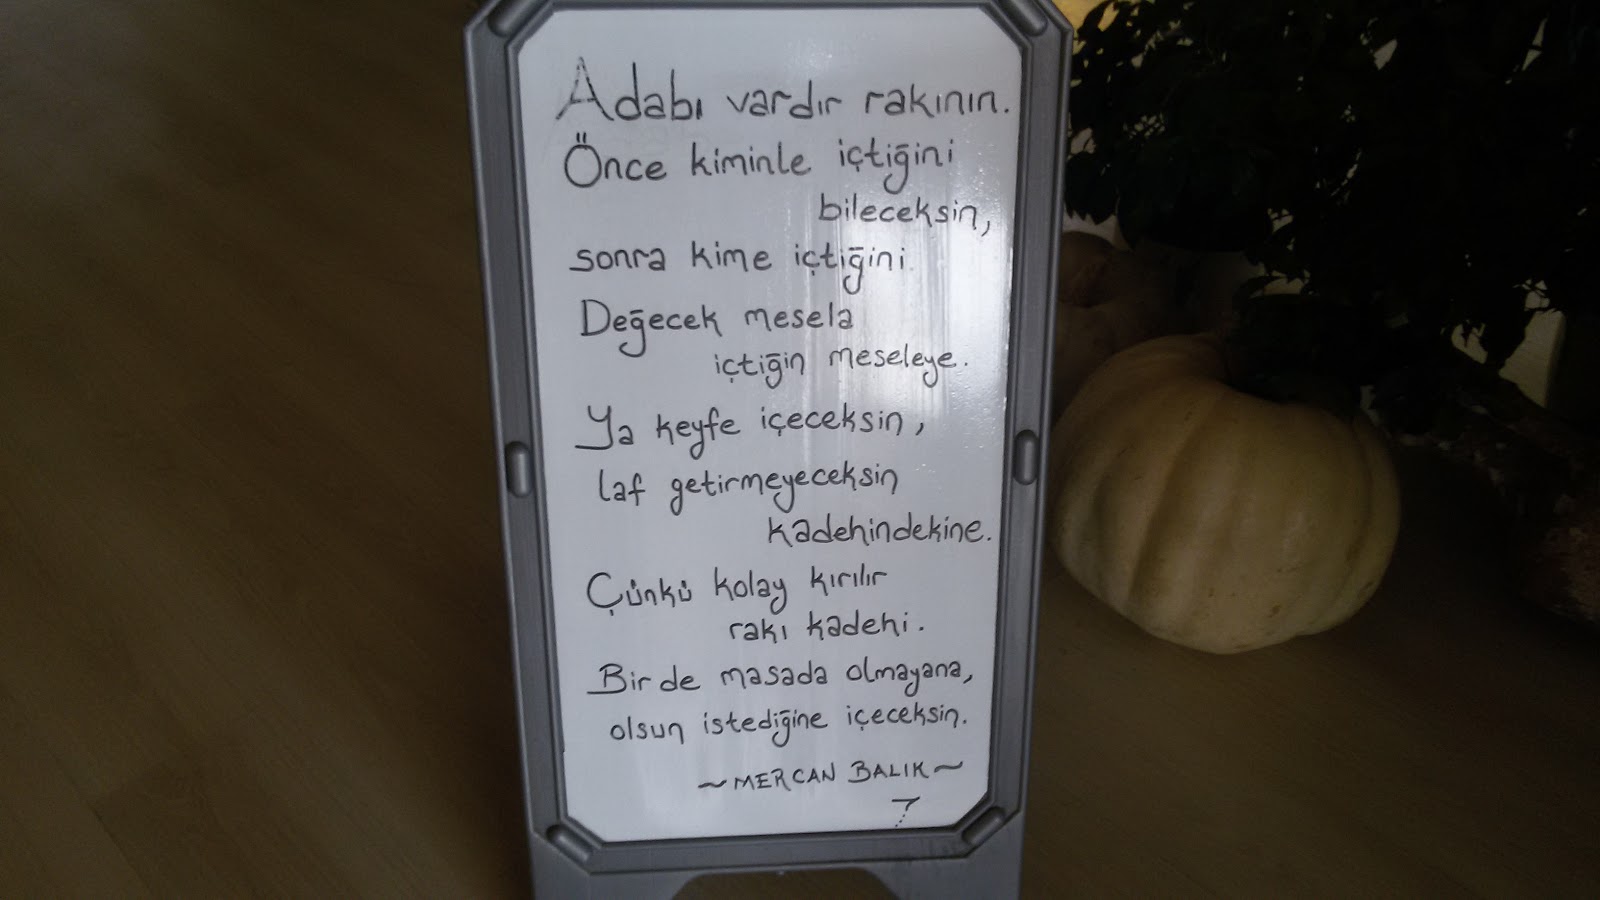 Adabı vardır rakının.
Önce kiminle içtiğini
bileceksin,
sonra kime içtiğini.
Değecek mesela
içtiğin meseleye.
Ya keyfe içeceksin,
laf getirmeyeceksin
kadehindekine.
Çünkü kolay kırılır
rakı kadehi.
Bir de masada olmayana,
olsun istediğine içeceksin.
~MERCAN BALIK~
7